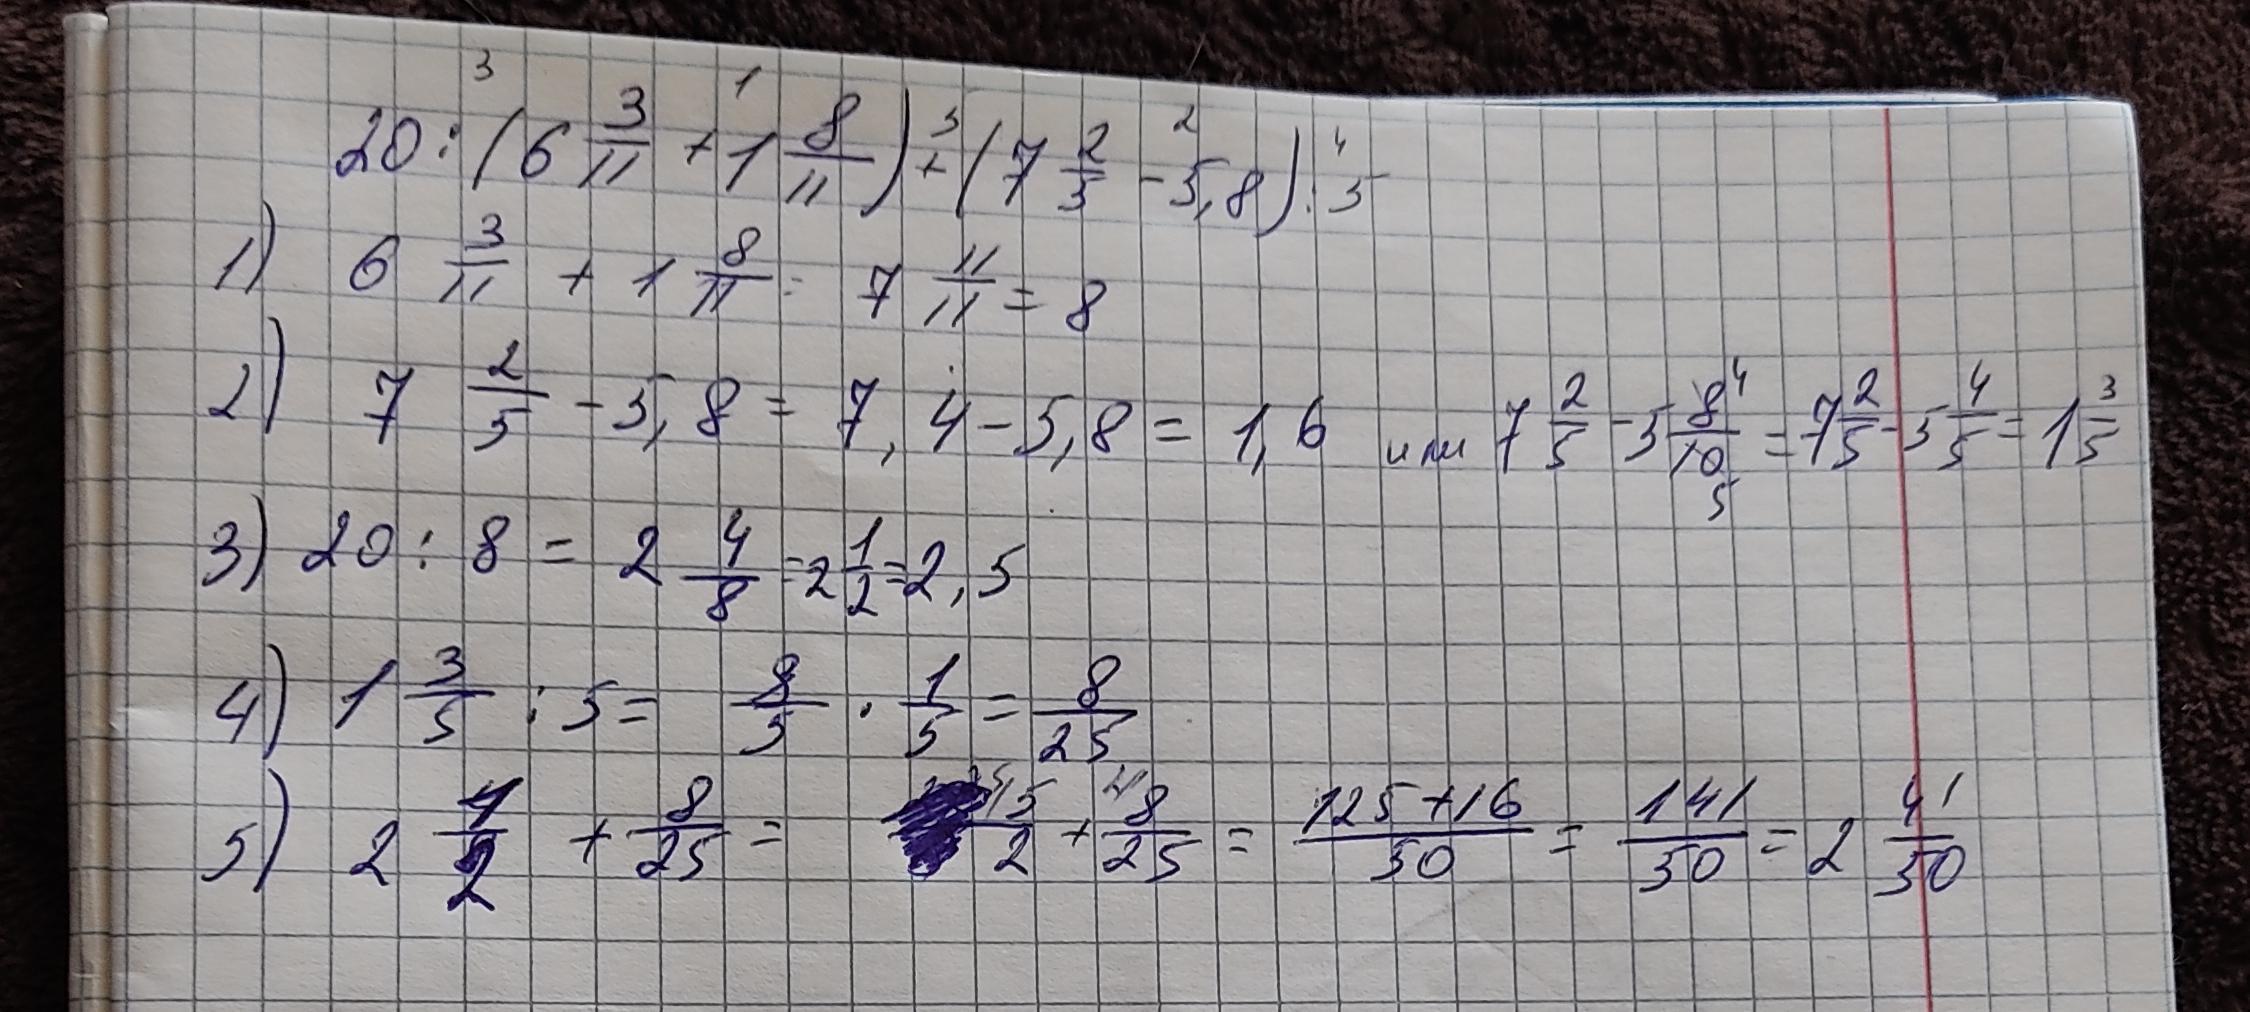 20 : (6 3/11 + 1 8/11) + (7 2/5 - 5,8) : 5
1) 6 3/11 + 1 8/11 = 7 11/11 = 8
2) 7 2/5 - 5,8 = 7,4 - 5,8 = 1,6 или 7 2/5 - 5 8/10 = 7 2/5 - 5 4/5 = 1 3/5
3) 20 : 8 = 2 4/8 = 2 1/2 = 2,5
4) 1 3/5 : 5 = 8/5 · 1/5 = 8/25
5) 2 1/2 + 8/25 = 5/2 + 8/25 = 125+16/50 = 141/50 = 2 41/50